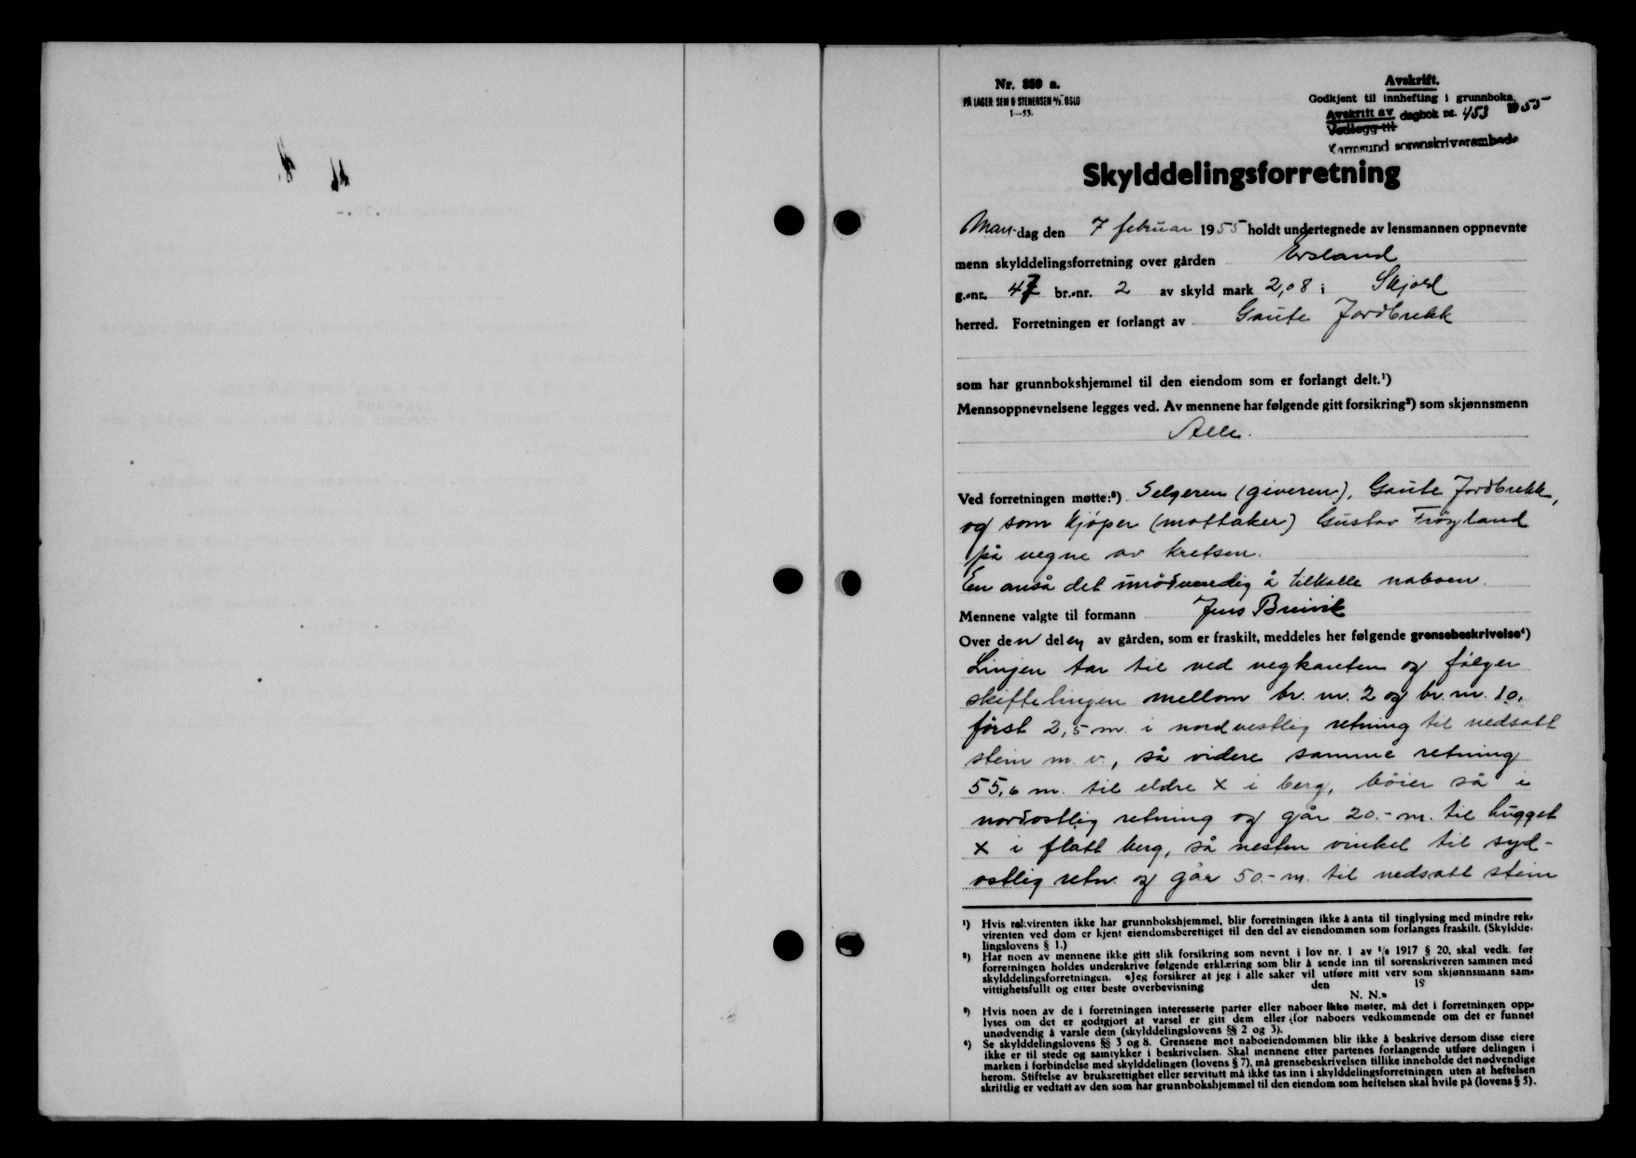 Nr. 350 a.
PÅ LAGER SEM & STENERSEN A/S OSLO
1—53.
Avskrift.
Godkjent til innhefting i grunnboka,
Avskrift av dagbok nr. 453 1955
Vedlegg til
Karmsund sorenskriverembede
Skylddelingsforretning
Mandag den 7 februar 1955 holdt undertegnede av lensmannen oppnevnte
menn skylddelingsforretning over gården Ersland
g.-nr. 47 br.-nr. 2 av skyld mark 2,08 i Skjold
herred. Forretningen er forlangt av Gaute Jordbrekk
som har grunnbokshjemmel til den eiendom som er forlangt delt.¹)
Mennsoppnevnelsene legges ved. Av mennene har følgende gitt forsikring²) som skjønnsmenn
Alle.
Ved forretningen møtte:³) Selgeren (giveren), Gaute Jordbrekk,
og som kjøper (mottaker) Gustav Frøyland
på vegne av kretsen.
En anså det unödvendig å tilkalle naboen.
Mennene valgte til formann Jens Breivik
Over den delen av gården, som er fraskilt, meddeles her følgende grensebeskrivelse⁴)
Linjen tar til ved vegkanten og følger
skiftelinjen mellom br. nr. 2 og br. nr. 10,
först 2,5 m i nordvestlig retning til nedsatt
stein m. v., så videre samme retning
55,6 m. til eldre x i berg, böier så i
nordostlig retning og går 20.- m. til hugget
x i flatt berg, så nesten vinkel til syd-
ostlig retn. og går 50.- m. til nedsatt stein
¹) Hvis rekvirenten ikke har grunnbokshjemmel, blir forretningen ikke å anta til tinglysing med mindre rek-
virenten ved dom er kjent eiendomsberettiget til den del av eiendommen som forlanges fraskilt. (Skyldde-
lingslovens § 1.)
²) Har noen av mennene ikke gitt slik forsikring som nevnt i lov nr. 1 av 1/6 1917 § 20, skal vedk. før
forretningen holdes underskrive følgende erklæring som blir å sende inn til sorenskriveren sammen med
skylddelingsforretningen. «Jeg forsikrer at jeg i alle saker vil utføre mitt verv som skjønnsmann sam-
vittighetsfullt og etter beste overbevisning den 19
N. N.»
³) Hvis noen av de i forretningen interesserte parter eller naboer ikke møter, må det i forretningen opp-
lyses om det er godtgjort at varsel er gitt dem eller for naboers vedkommende om det er funnet
unødvendig å varsle dem (skylddelingslovens §§ 2 og 3).
⁴) Se skylddelingslovens §§ 3 og 8. Grensene mot naboeiendommen blir ikke å beskrive dersom disse eiere
ikke er til stede og samtykker i beskrivelsen. Skal mennene etter partenes forlangende utføre delingen i
marken i forbindelse med skylddelingen (lovens § 7), må grensebeskrivelsen tillike inneholde det nødvendige
herom. Stiftelse av bruksrettighet eller servitutt må ikke tas inn i skylddelingsforretningen uten at heftelsen
skriftlig er vedtatt av den som har grunnbokshjemmel til den eiendom som heftelsen skal hvile på (lovens § 5).